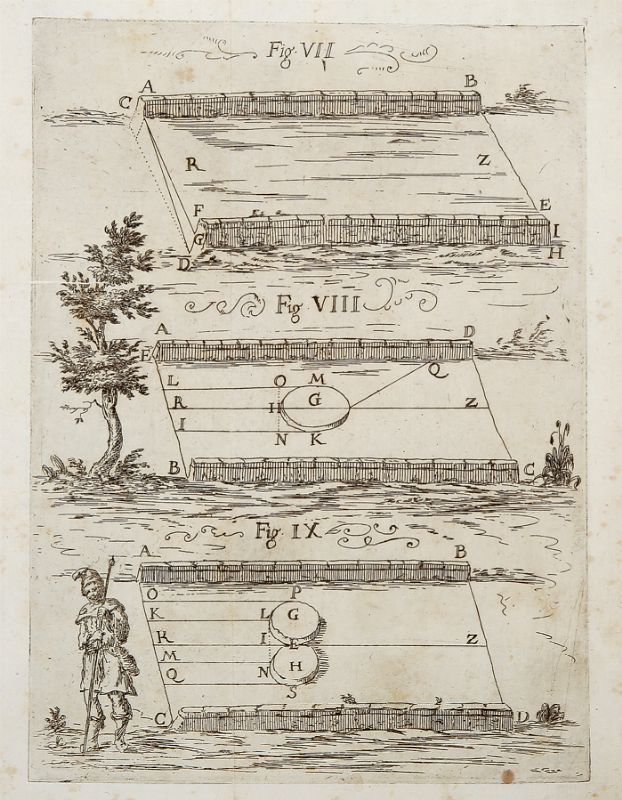 Fig. VII
A B
C
R Z
F E
G I
D H
Fig. VIII
A D
E
Q
L O M
G
R H Z
I
N K
B C
Fig. IX
A B
O P
K L G
R I E Z
M
H
Q N
S
C D